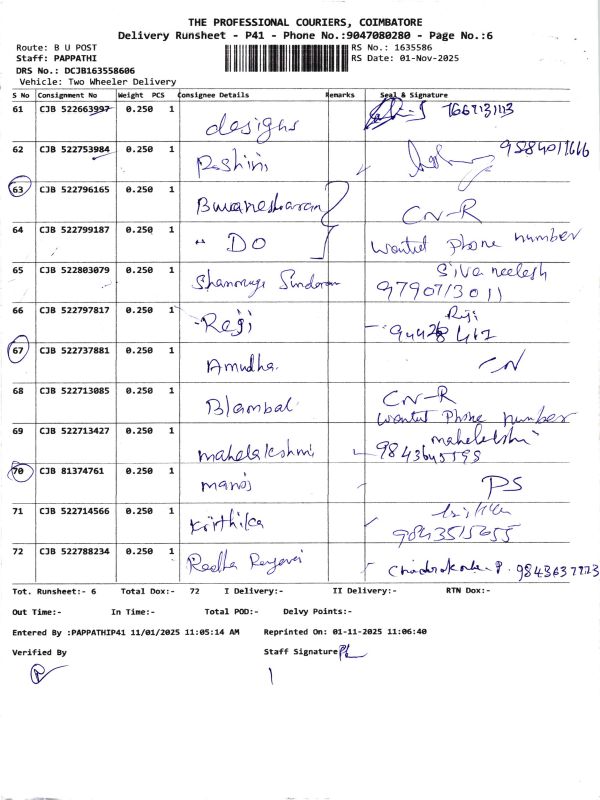 THE PROFESSIONAL COURIERS, COIMBATORE
Delivery Runsheet - P41 - Phone No.:9047080280 - Page No.:6
Route: B U POST
RS No.: 1635586
Staff: PAPPATHI
RS Date: 01-Nov-2025
DRS No.: DCJB163558606
Vehicle: Two Wheeler Delivery
S No Consignment No Weight PCS Consignee Details Remarks Seal & Signature
61 CJB 522663997 0.250 1 designs
62 CJB 522753984 0.250 1 Rashini
63 CJB 522796165 0.250 1 CN-R
64 CJB 522799187 0.250 1 " DO wantut phone number
65 CJB 522803079 0.250 1 Shanmuga Sundaram Siva neelesh
9790713011
66 CJB 522797817 0.250 1 Regi Riji
67 CJB 522737881 0.250 1 Amudha. CN
68 CJB 522713085 0.250 1 Blambal CN-R
wantut Phone number
69 CJB 522713427 0.250 1 mahalakshmi
70 CJB 81374761 0.250 1 manoj PS
71 CJB 522714566 0.250 1 Kirthika
9843515655
72 CJB 522788234 0.250 1 Radha
Tot. Runsheet:- 6 Total Dox:- 72 I Delivery:- II Delivery:- RTN Dox:-
Out Time:- In Time:- Total POD:- Delvy Points:-
Entered By :PAPPATHIP41 11/01/2025 11:05:14 AM Reprinted On: 01-11-2025 11:06:40
Verified By Staff Signature